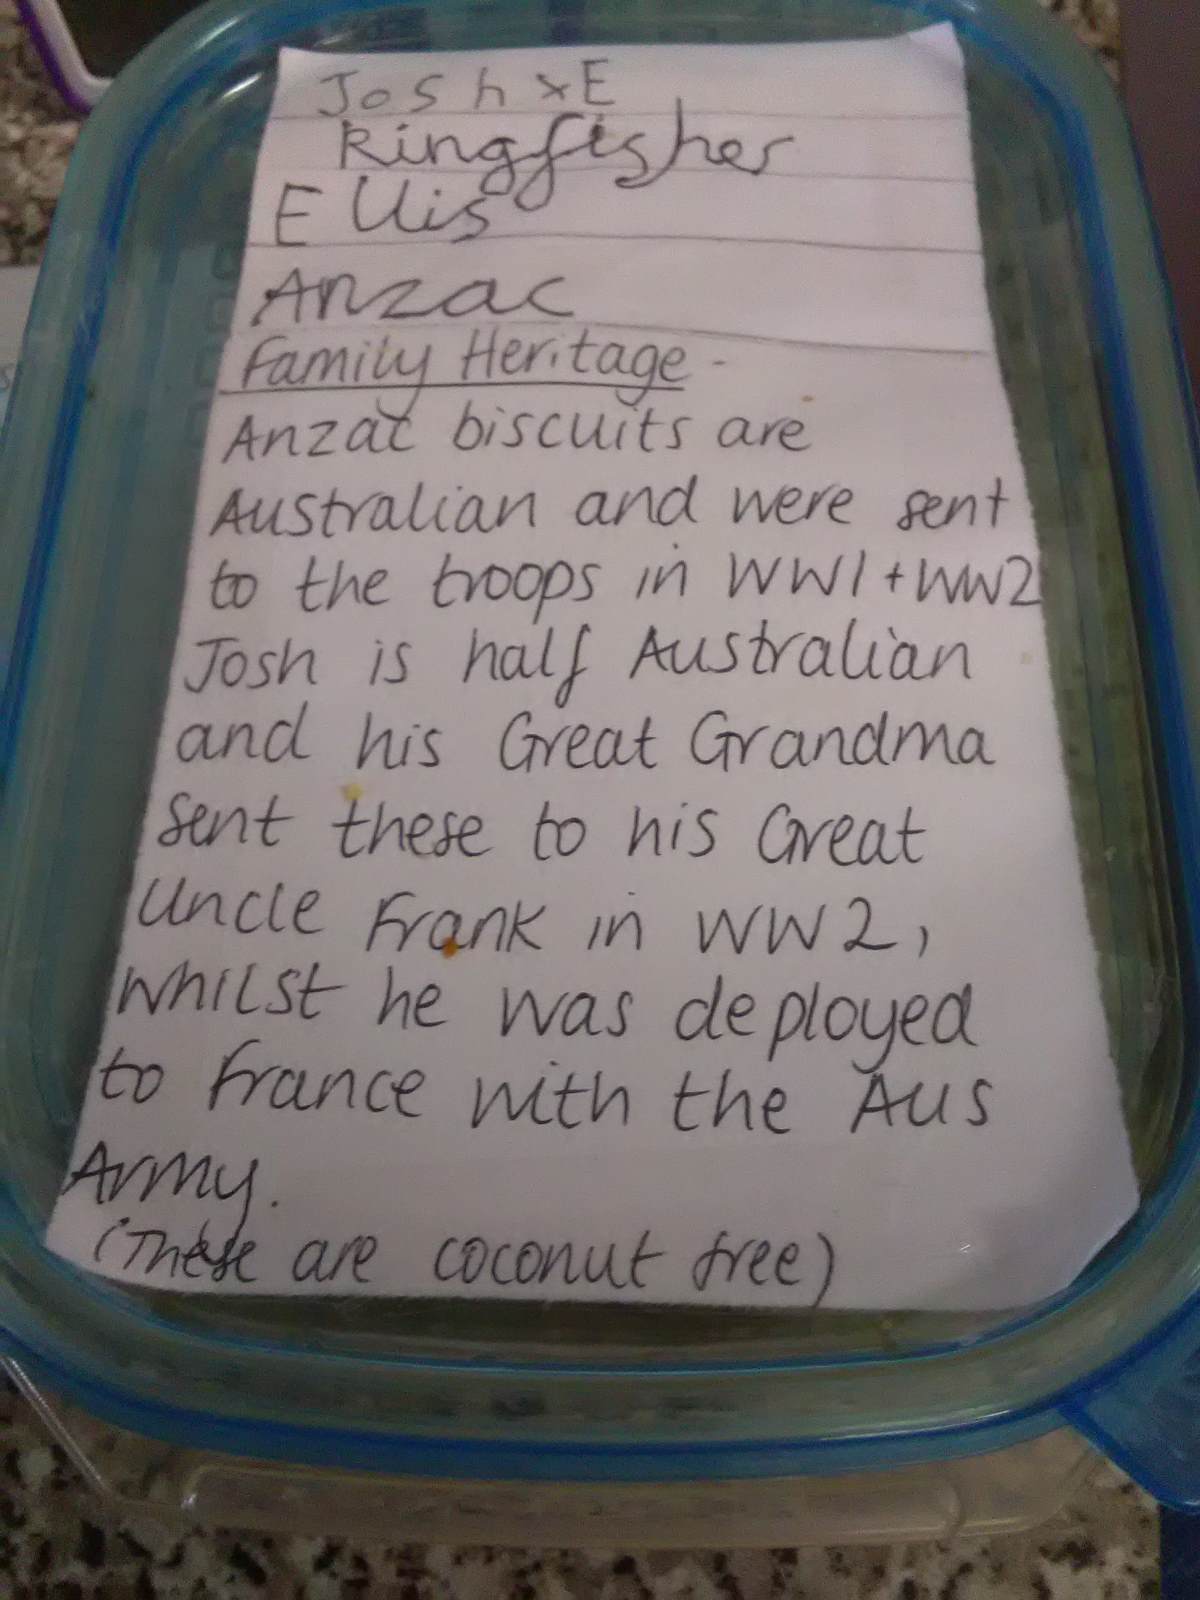 Josh x E
Kingfisher
Ellis
Anzac
Family Heritage -
Anzac biscuits are
Australian and were sent
to the troops in WW1 + WW2
Josh is half Australian
and his Great Grandma
sent these to his Great
Uncle Frank in WW2,
whilst he was deployed
to France with the Aus
Army.
(These are coconut free)